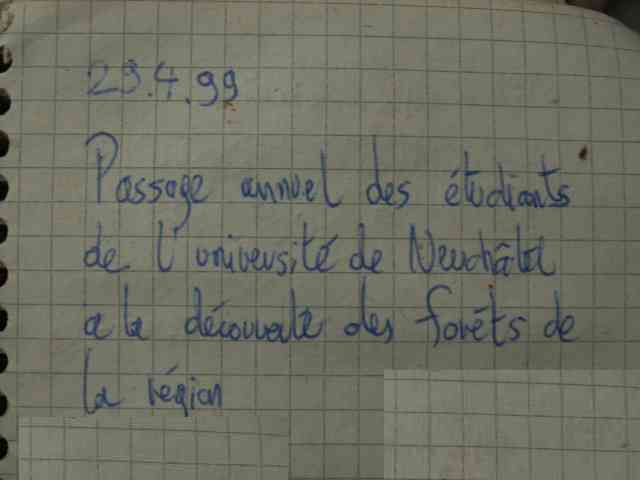 29.4.99
Passage annuel des étudiants
de l'université de Neuchâtel
a la découverte des forêts de
la région